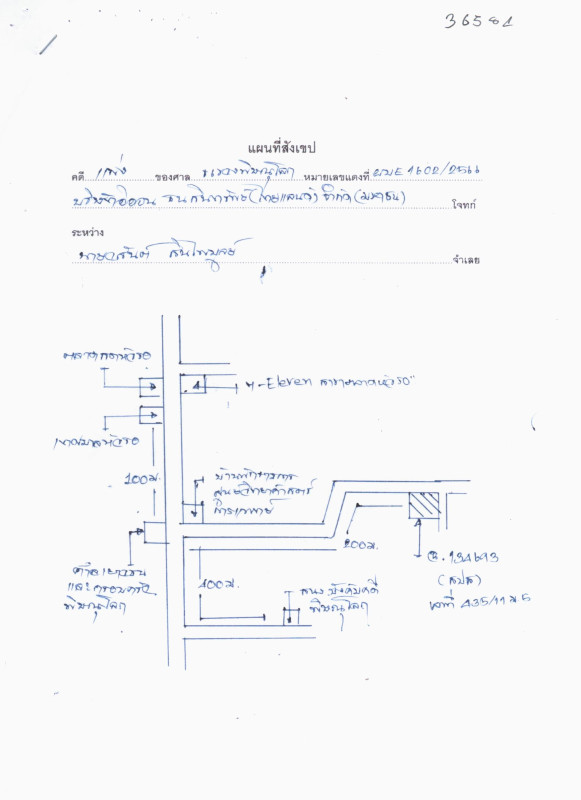 36581
แผนที่สังเขป
คดี แพ่ง ของศาล แขวงพิษณุโลก หมายเลขแดงที่ ผบE1602/2566
บริษัทอิออน ธนสินทรัพย์(ไทยแลนด์) จำกัด(มหาชน) โจทก์
ระหว่าง
จำเลย
7-Eleven สาขาตลาดหัวรอ"
เทศบาลหัวรอ
100ม.
บ้านพักข้าราชการ
ศูนย์วิทยาศาสตร์
การแพทย์
ศาลเยาวชน
และครอบครัว
พิษณุโลก
400ม.
สนง.บังคับคดี
พิษณุโลก
200ม.
ฉ.134693
(สปส)
เลขที่ 435/11 ม.5